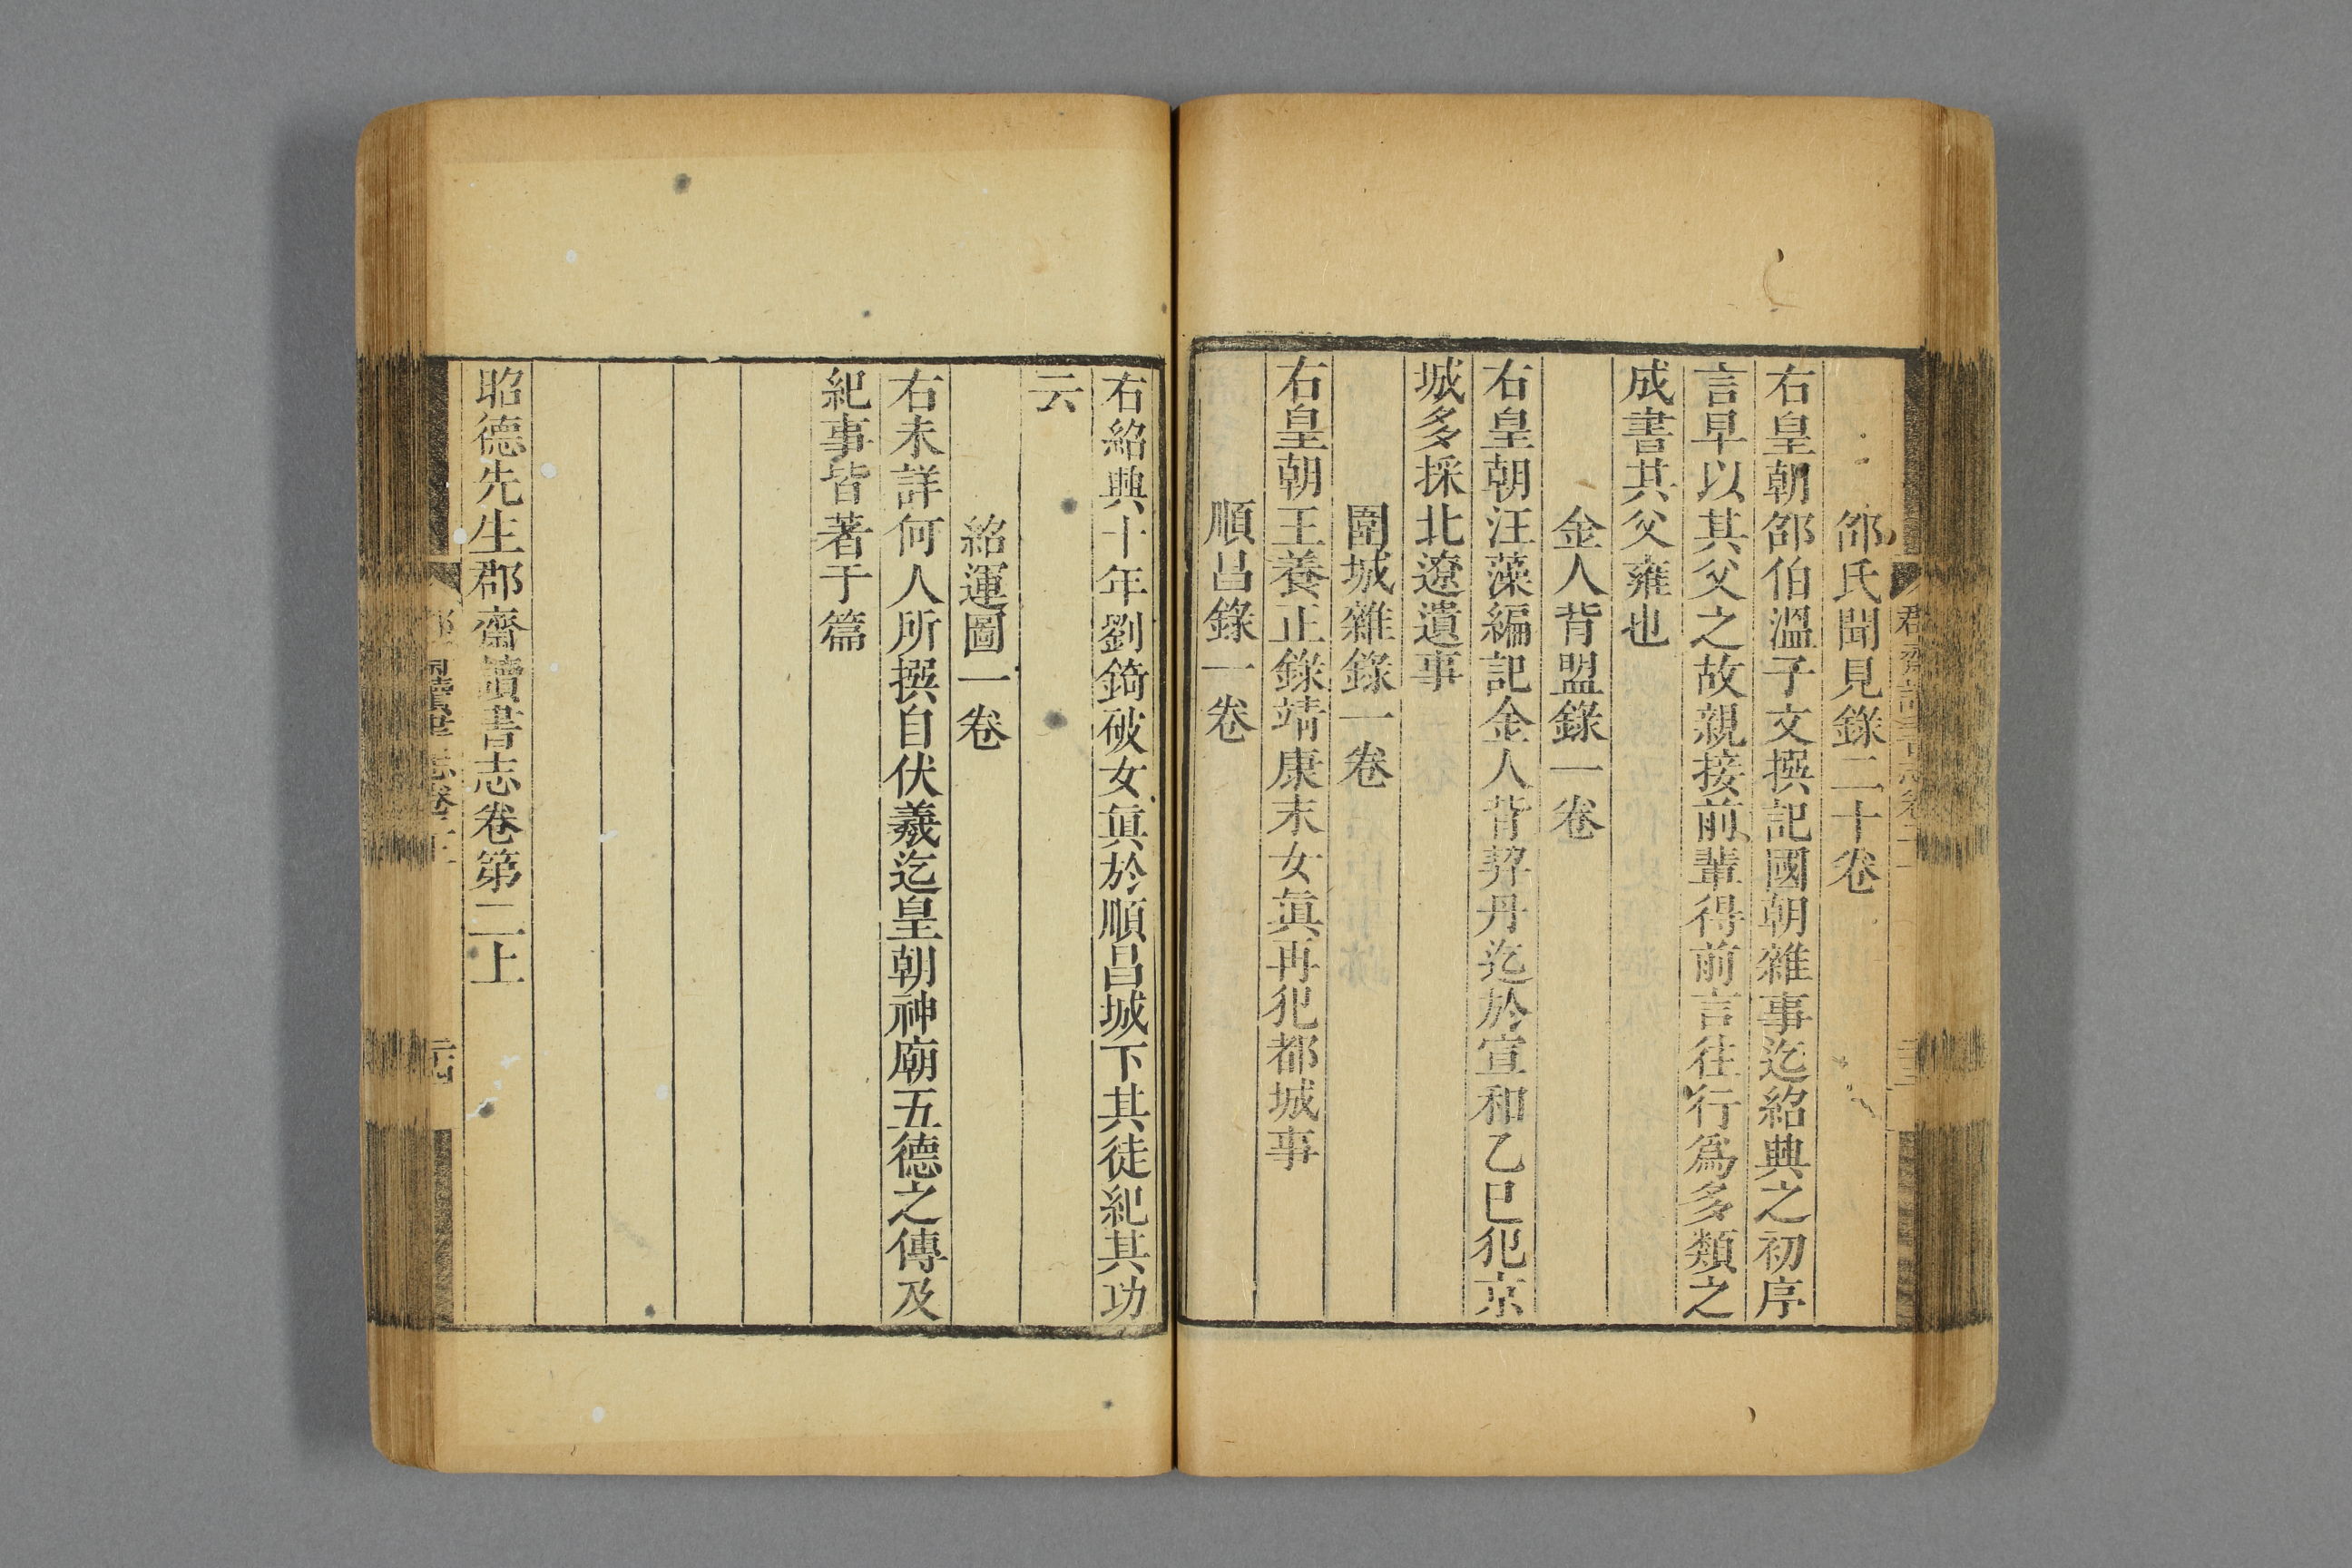 邵氏聞見錄二十卷
右皇朝邵伯溫子文撰記國朝雜事迄紹興之初序
言早以其父之故親接前輩得前言往行爲多類之
成書其父雍也
金人背盟錄一卷
右皇朝汪藻編記金人背契丹迄於宣和乙巳犯京
城多採北遼遺事
圍城雜錄一卷
右皇朝王養正錄靖康末女眞再犯都城事
順昌錄一卷
右紹興十年劉錡破女眞於順昌城下其徒紀其功
云
紹運圖一卷
右未詳何人所撰自伏羲迄皇朝神廟五德之傳及
紀事皆著于篇
昭德先生郡齋讀書志卷第二上